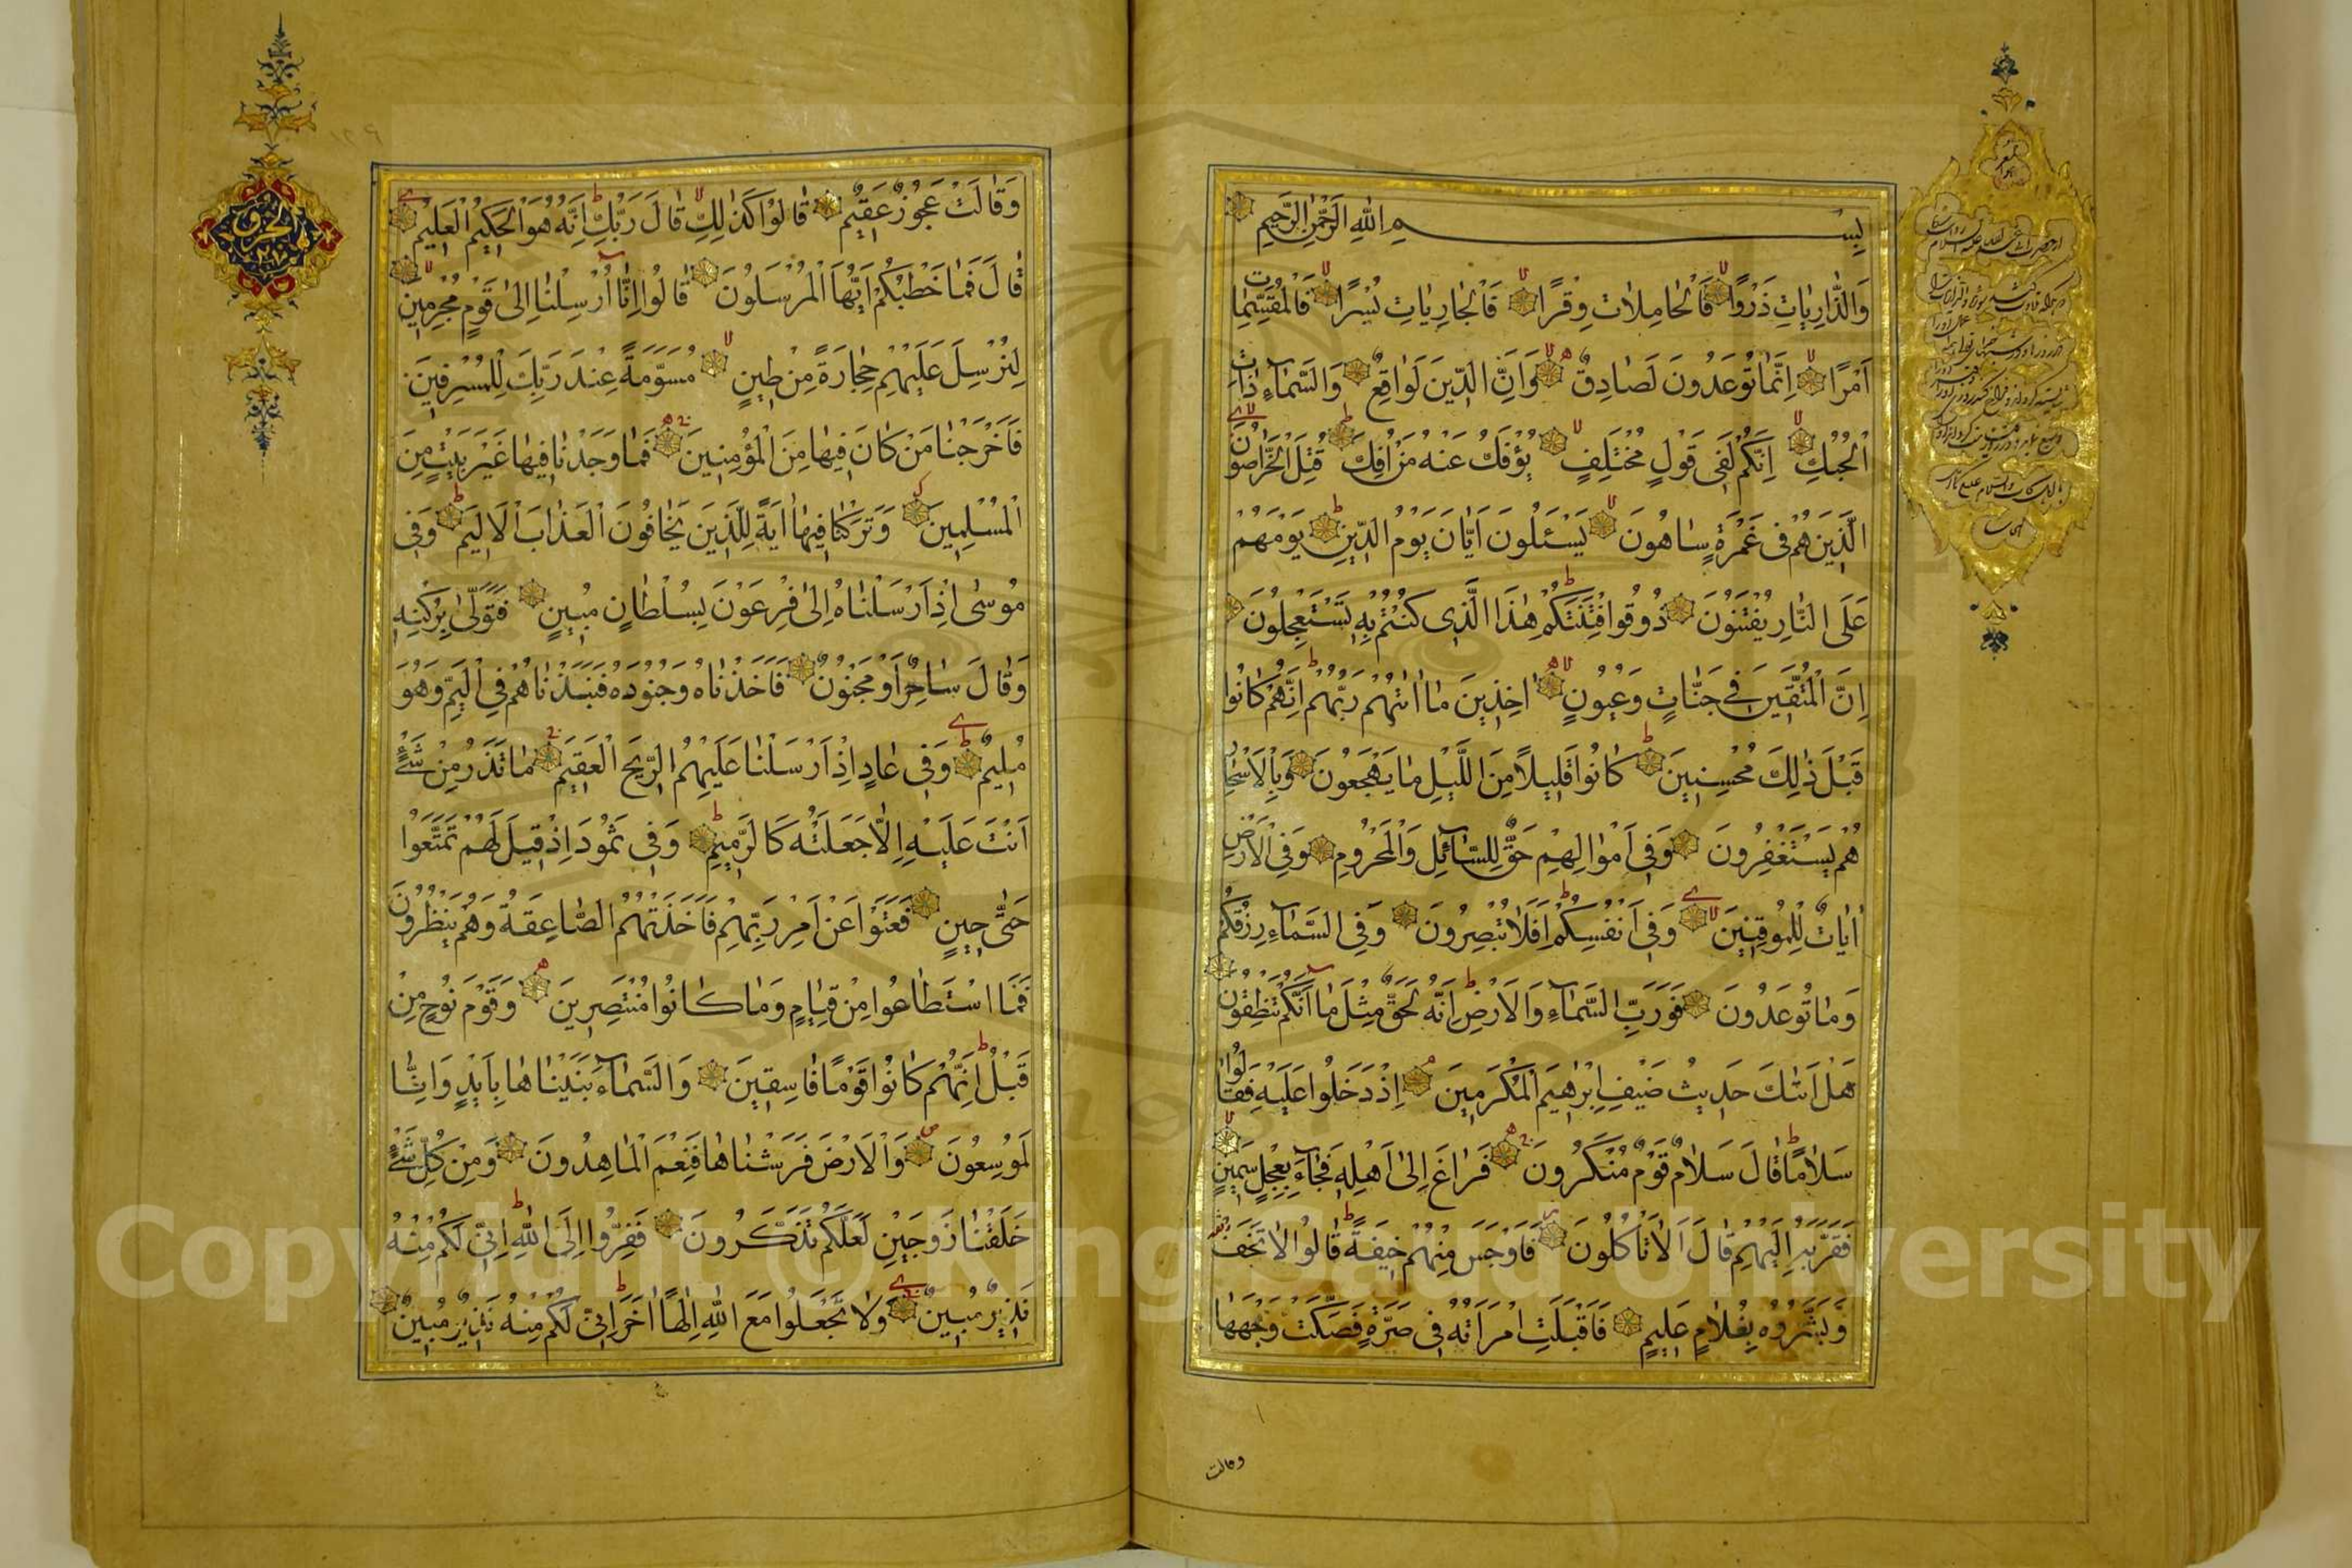 بِسْمِ اللّٰهِ الرَّحْمٰنِ الرَّحِيمِ
وَالذَّارِيَاتِ ذَرْوًا فَالْحَامِلَاتِ وِقْرًا فَالْجَارِيَاتِ يُسْرًا فَالْمُقَسِّمَاتِ
اَمْرًا اِنَّمَا تُوعَدُونَ لَصَادِقٌ وَاِنَّ الدِّينَ لَوَاقِعٌ وَالسَّمَآءِ ذَاتِ
الْحُبُكِ اِنَّكُمْ لَفِى قَوْلٍ مُخْتَلِفٍ يُؤْفَكُ عَنْهُ مَنْ اُفِكَ قُتِلَ الْخَرَّاصُونَ
الَّذِينَ هُمْ فِى غَمْرَةٍ سَاهُونَ يَسْئَلُونَ اَيَّانَ يَوْمُ الدِّينِ يَوْمَ هُمْ
عَلَى النَّارِ يُفْتَنُونَ ذُوقُوا فِتْنَتَكُمْ هٰذَا الَّذِى كُنْتُمْ بِهِ تَسْتَعْجِلُونَ
اِنَّ الْمُتَّقِينَ فِى جَنَّاتٍ وَعُيُونٍ اٰخِذِينَ مَا اٰتٰيهُمْ رَبُّهُمْ اِنَّهُمْ كَانُوا
قَبْلَ ذٰلِكَ مُحْسِنِينَ كَانُوا قَلِيلًا مِنَ اللَّيْلِ مَا يَهْجَعُونَ وَبِالْاَسْحَارِ
هُمْ يَسْتَغْفِرُونَ وَفِى اَمْوَالِهِمْ حَقٌّ لِلسَّآئِلِ وَالْمَحْرُومِ وَفِى الْاَرْضِ
اٰيَاتٌ لِلْمُوقِنِينَ وَفِى اَنْفُسِكُمْ اَفَلَا تُبْصِرُونَ وَفِى السَّمَآءِ رِزْقُكُمْ
وَمَا تُوعَدُونَ فَوَرَبِّ السَّمَآءِ وَالْاَرْضِ اِنَّهُ لَحَقٌّ مِثْلَ مَا اَنَّكُمْ تَنْطِقُونَ
هَلْ اَتٰيكَ حَدِيثُ ضَيْفِ اِبْرٰهِيمَ الْمُكْرَمِينَ اِذْ دَخَلُوا عَلَيْهِ فَقَالُوا
سَلَامًا قَالَ سَلَامٌ قَوْمٌ مُنْكَرُونَ فَرَاغَ اِلٰى اَهْلِهِ فَجَآءَ بِعِجْلٍ سَمِينٍ
فَقَرَّبَهُ اِلَيْهِمْ قَالَ اَلَا تَأْكُلُونَ فَاَوْجَسَ مِنْهُمْ خِيفَةً قَالُوا لَا تَخَفْ
وَبَشَّرُوهُ بِغُلَامٍ عَلِيمٍ فَاَقْبَلَتِ امْرَاَتُهُ فِى صَرَّةٍ فَصَكَّتْ وَجْهَهَا
وقالت
وَقَالَتْ عَجُوزٌ عَقِيمٌ قَالُوا كَذٰلِكِ قَالَ رَبُّكِ اِنَّهُ هُوَ الْحَكِيمُ الْعَلِيمُ
قَالَ فَمَا خَطْبُكُمْ اَيُّهَا الْمُرْسَلُونَ قَالُوا اِنَّا اُرْسِلْنَا اِلٰى قَوْمٍ مُجْرِمِينَ
لِنُرْسِلَ عَلَيْهِمْ حِجَارَةً مِنْ طِينٍ مُسَوَّمَةً عِنْدَ رَبِّكَ لِلْمُسْرِفِينَ
فَاَخْرَجْنَا مَنْ كَانَ فِيهَا مِنَ الْمُؤْمِنِينَ فَمَا وَجَدْنَا فِيهَا غَيْرَ بَيْتٍ مِنَ
الْمُسْلِمِينَ وَتَرَكْنَا فِيهَا اٰيَةً لِلَّذِينَ يَخَافُونَ الْعَذَابَ الْاَلِيمَ وَفِى
مُوسٰى اِذْ اَرْسَلْنَاهُ اِلٰى فِرْعَوْنَ بِسُلْطَانٍ مُبِينٍ فَتَوَلّٰى بِرُكْنِهِ
وَقَالَ سَاحِرٌ اَوْ مَجْنُونٌ فَاَخَذْنَاهُ وَجُنُودَهُ فَنَبَذْنَاهُمْ فِى الْيَمِّ وَهُوَ
مُلِيمٌ وَفِى عَادٍ اِذْ اَرْسَلْنَا عَلَيْهِمُ الرِّيحَ الْعَقِيمَ مَا تَذَرُ مِنْ شَىْءٍ
اَتَتْ عَلَيْهِ اِلَّا جَعَلَتْهُ كَالرَّمِيمِ وَفِى ثَمُودَ اِذْ قِيلَ لَهُمْ تَمَتَّعُوا
حَتّٰى حِينٍ فَعَتَوْا عَنْ اَمْرِ رَبِّهِمْ فَاَخَذَتْهُمُ الصَّاعِقَةُ وَهُمْ يَنْظُرُونَ
فَمَا اسْتَطَاعُوا مِنْ قِيَامٍ وَمَا كَانُوا مُنْتَصِرِينَ وَقَوْمَ نُوحٍ مِنْ
قَبْلُ اِنَّهُمْ كَانُوا قَوْمًا فَاسِقِينَ وَالسَّمَآءَ بَنَيْنَاهَا بِاَيْدٍ وَاِنَّا
لَمُوسِعُونَ وَالْاَرْضَ فَرَشْنَاهَا فَنِعْمَ الْمَاهِدُونَ وَمِنْ كُلِّ شَىْءٍ
خَلَقْنَا زَوْجَيْنِ لَعَلَّكُمْ تَذَكَّرُونَ فَفِرُّوا اِلَى اللّٰهِ اِنِّى لَكُمْ مِنْهُ
نَذِيرٌ مُبِينٌ وَلَا تَجْعَلُوا مَعَ اللّٰهِ اِلٰهًا اٰخَرَ اِنِّى لَكُمْ مِنْهُ نَذِيرٌ مُبِينٌ
Copyright © King Saud University